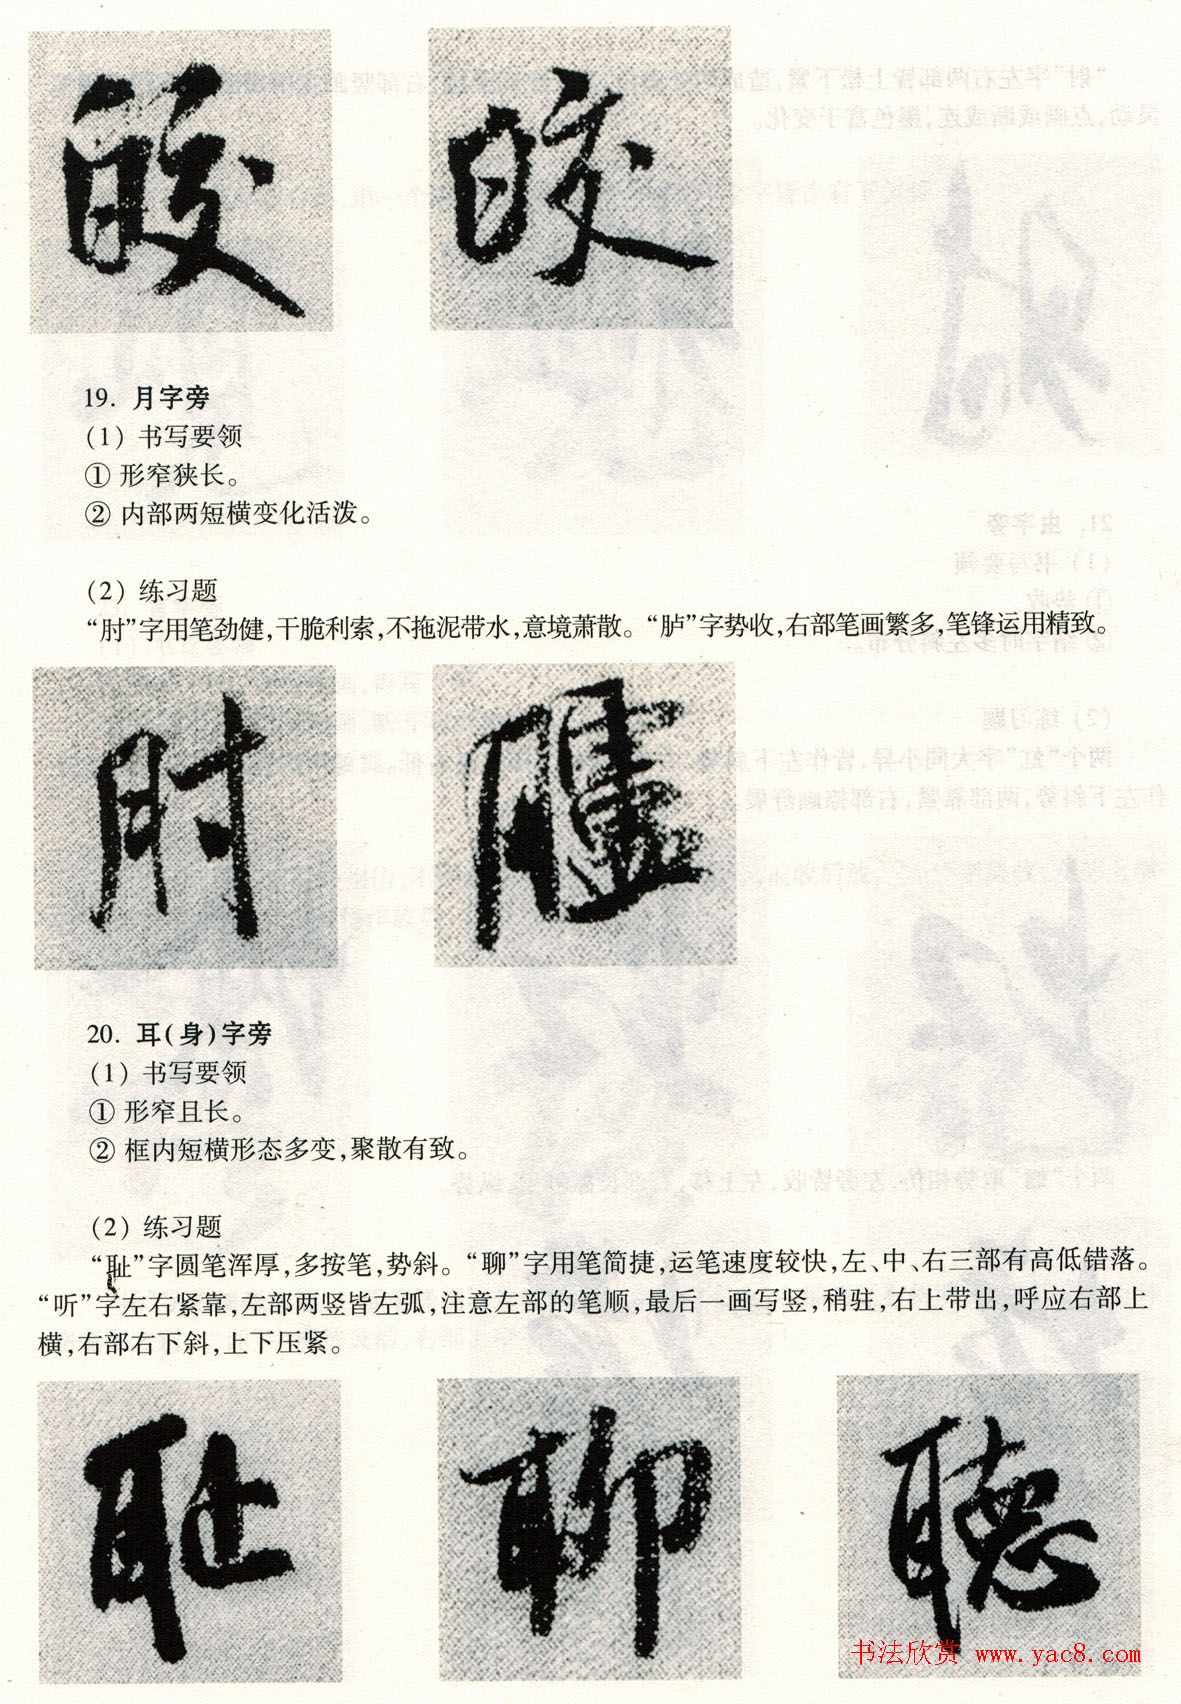 皎 皎
19. 月字旁
(1) 书写要领
① 形窄狭长。
② 内部两短横变化活泼。
(2) 练习题
“肘”字用笔劲健,干脆利索,不拖泥带水,意境萧散。“胪”字势收,右部笔画繁多,笔锋运用精致。
肘 臚
20. 耳(身)字旁
(1) 书写要领
① 形窄且长。
② 框内短横形态多变,聚散有致。
(2) 练习题
“耻”字圆笔浑厚,多按笔,势斜。“聊”字用笔简捷,运笔速度较快,左、中、右三部有高低错落。
“听”字左右紧靠,左部两竖皆左弧,注意左部的笔顺,最后一画写竖,稍驻,右上带出,呼应右部上
横,右部右下斜,上下压紧。
耻 聊 聽
书法欣赏 www.yac8.com